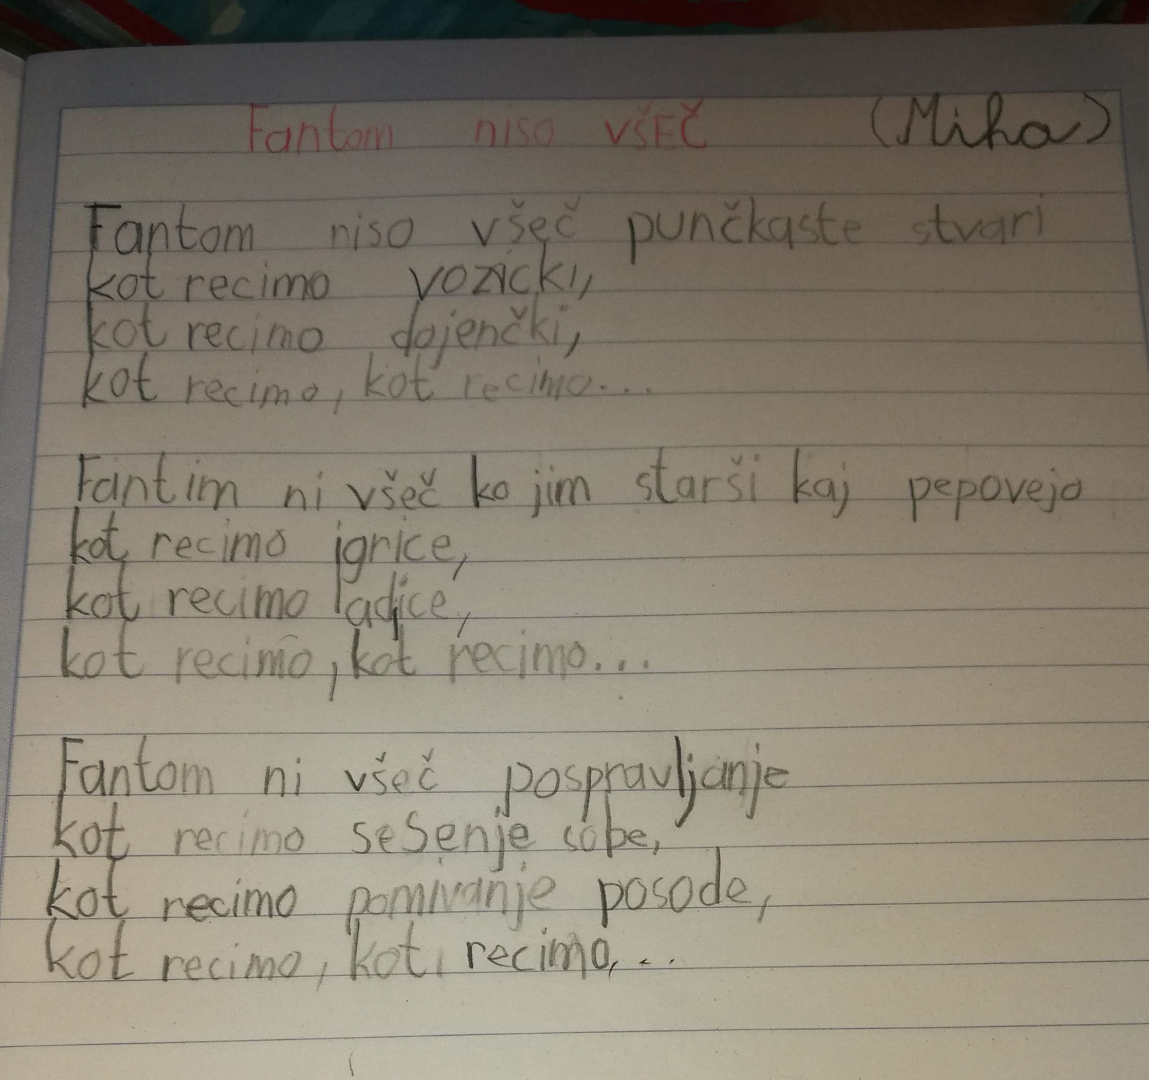 Fantom niso všeč (Miha)
Fantom niso všeč punčkaste stvari
kot recimo vozicki,
kot recimo dojenčki,
kot recimo, kot recimo...
Fantim ni všeč ko jim starši kaj pepovejo
kot recimo igrice,
kot recimo ladjice,
kot recimo, kot recimo...
Fantom ni všeč pospravljanje
kot recimo seSenje sobe,
kot recimo pomivanje posode,
kot recimo, kot recimo,..